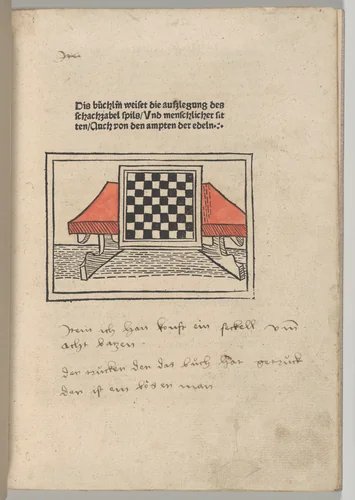 Item
Dis büchlin weiset die auszlegung des
schachzabel spils/Und menschlicher sit
ten/Auch von den ampten der edeln.:.
Item ich han kouft ein seckell um
acht bazen.
der trucker der das buch hat getruck
der ist ein böser man